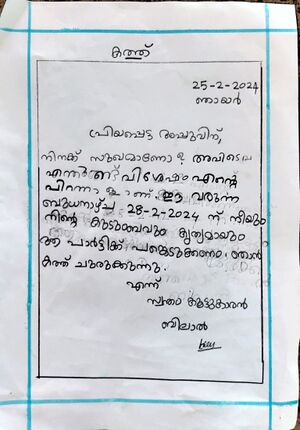 കത്ത്
25-2-2024
ഞായർ
പ്രിയപ്പെട്ട അപ്പുവിന്,
നിനക്ക് സുഖമാണോ? അവിടെ
എന്തുണ്ട് വിശേഷം എന്റെ
പിറന്നാളാണ്. ഈ വരുന്ന
ബുധനാഴ്ച 28-2-2024 ന് നീയും
നിന്റെ കുടുംബവും കൃത്യമായും
ആ പാർട്ടിക്ക് പങ്കെടുക്കണം. ഞാൻ
കത്ത് ചുരുക്കുന്നു.
എന്ന്
സ്വന്തം കൂട്ടുകാരൻ
ബിലാൽ